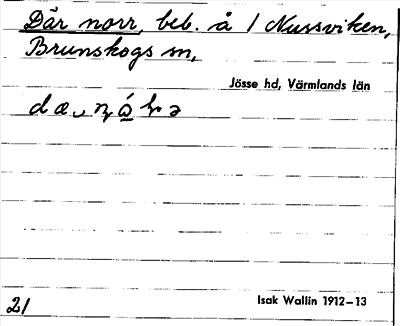 Där norr, beb. å / Nussviken,
Brunskogs sn,
Jösse hd, Värmlands län
21
Isak Wallin 1912–13